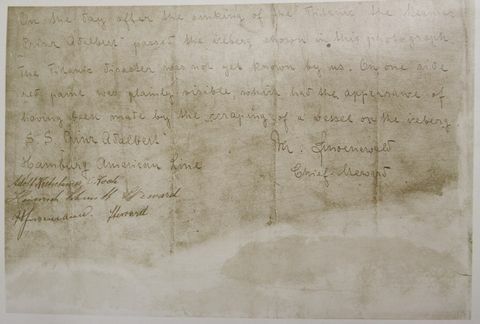 On the day after the sinking of the Titanic the steamer
Prinz Adalbert passed the iceberg shown in this photograph
The Titanic disaster was not yet known by us. On one side
red paint was plainly visible, which had the appearance of
having been made by the scraping of a vessel on the iceberg.
S.S. Prinz Adalbert Mr.
Hamburg American Line Chief Steward
Steward
Steward